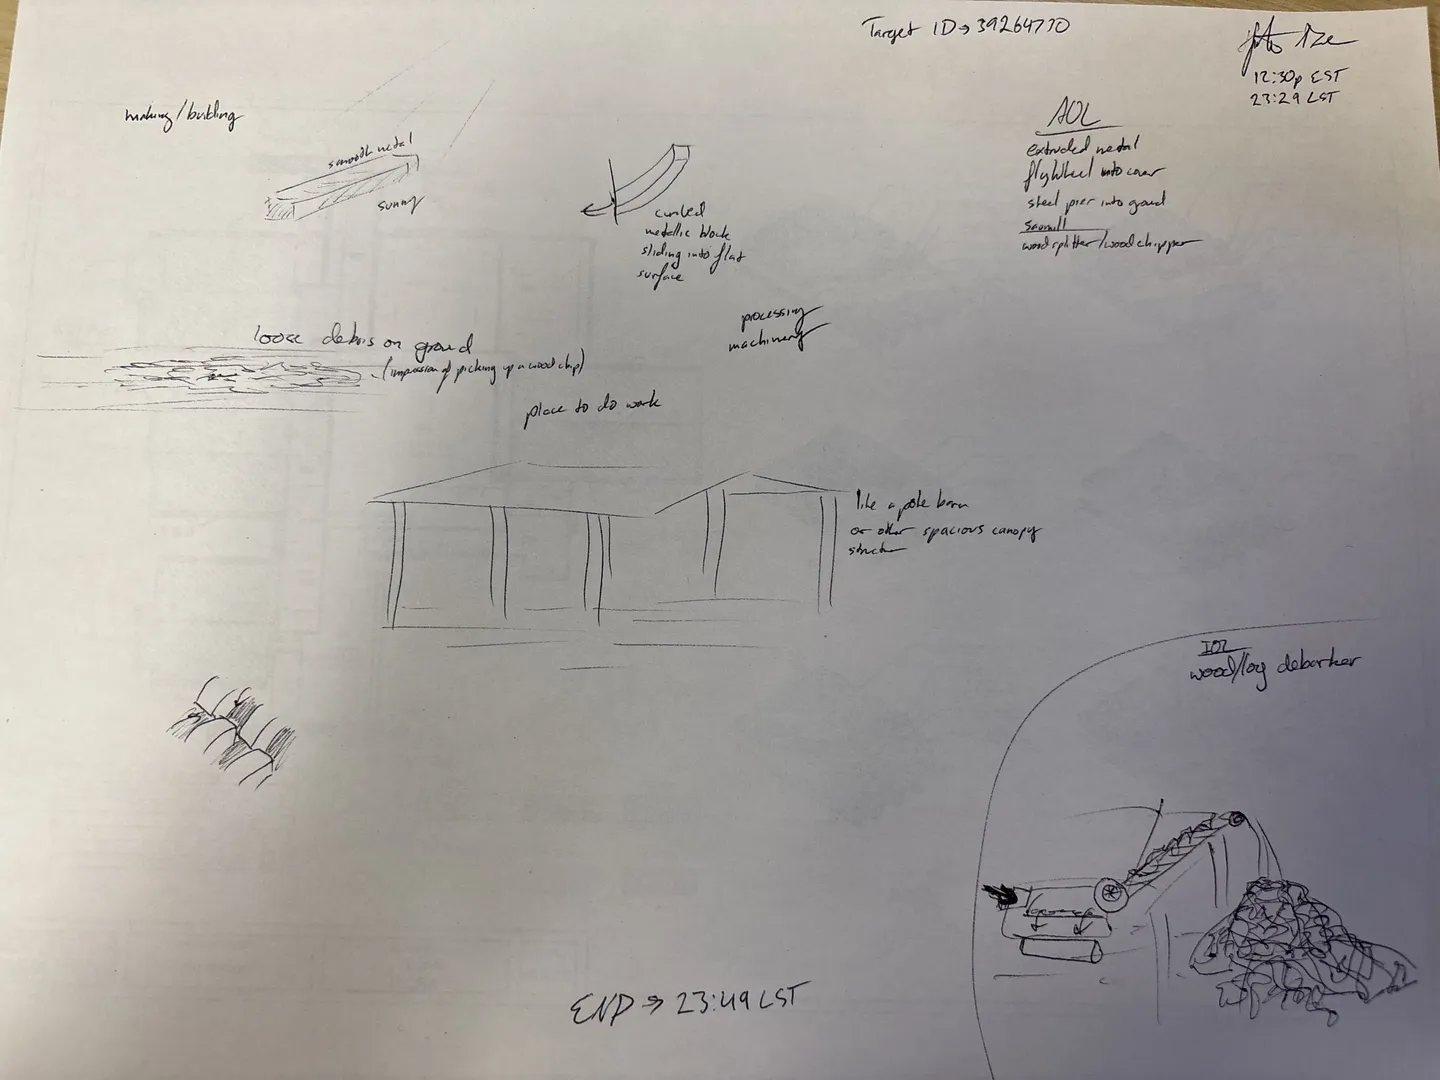 Target ID → 39264730
12:30p EST
23:29 LST
making/building
smooth metal
sunny
curved
metallic block
sliding into flat
surface
AOL
extruded metal
flywheel into cover
steel pier into ground
sawmill
wood splitter/wood chipper
processing
machinery
loose debris on ground
(impression of picking up a wood chip)
place to do work
like a pole barn
or other spacious canopy
structure
wood/log debarker
END → 23:49 LST